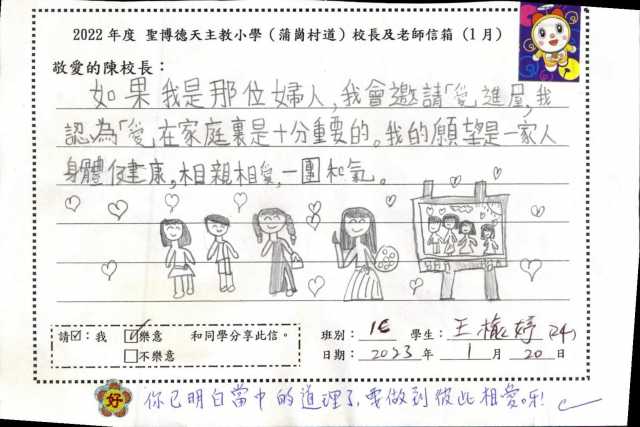 2022 年度 聖博德天主教小學（蒲崗村道）校長及老師信箱（1月）
敬愛的陳校長：
如果我是那位婦人，我會邀請「愛」進屋，我
認為「愛」在家庭裏是十分重要的。我的願望是一家人
身體健康，相親相愛，一團和氣。
請☑：我 ☑樂意 和同學分享此信。
□不樂意
班別：1E 學生：王 婷 (24)
日期：2023 年 1 月 20 日
好 你已明白當中的道理了，要做到彼此相愛呀！